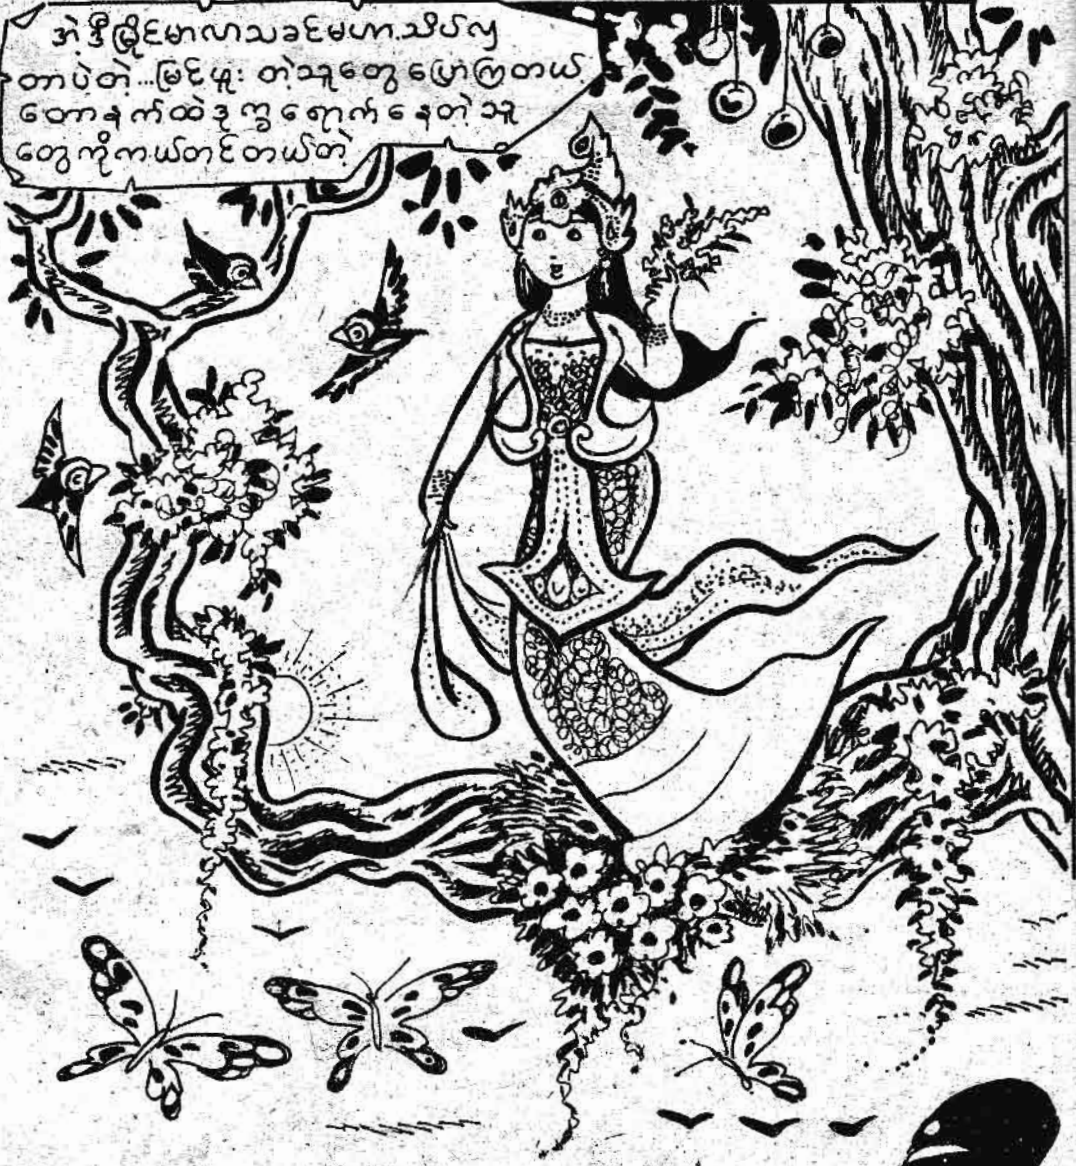 အဲ့ဒီမြိုင်မာလာသခင်မဟာ သိပ်လှ
တာပဲတဲ့...မြင်ဖူး တဲ့သူတွေ ပြောကြတယ်
တောနက်ထဲဒုက္ခရောက်နေတဲ့ သူ
တွေကိုကယ်တင်တယ်တဲ့